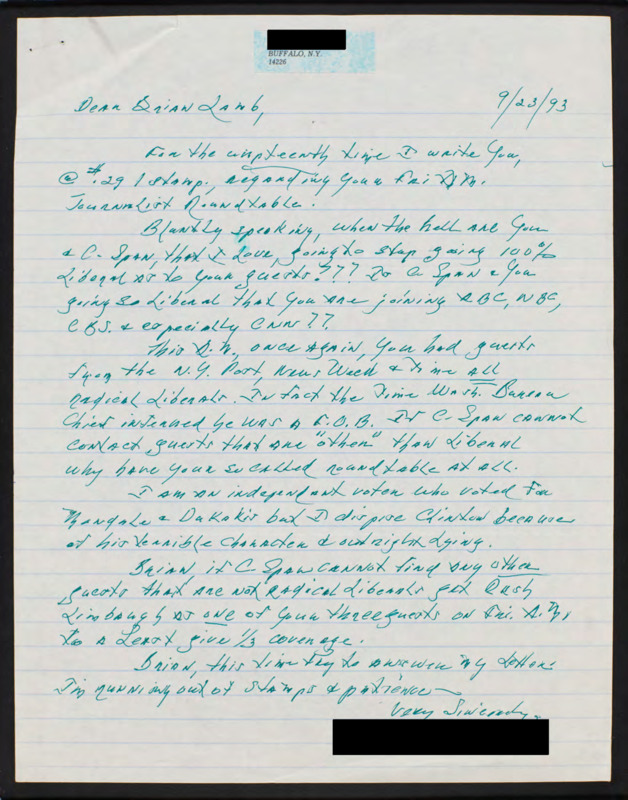 BUFFALO, N.Y.
14226
Dear Brian Lamb,
9/23/93
For the umpteenth time I write you,
@ $.29 / stamp, regarding your Fri A.M.
Journalist Roundtable.
Bluntly speaking, when the hell are you
& C-Span, that I love, going to stop going 100%
liberal as to your guests??? Is C Span & you
going so liberal that you are joining ABC, NBC,
CBS. & especially CNN??
This A.M., once again, you had guests
from the N.Y. Post, News Week & Time all
radical liberals. In fact the Time Wash. Bureau
Chief he was a F.O.B. If C-Span cannot
contact guests that are "other" than liberal
why have your so called roundtable at all.
I am an independant voter who voted for
Mondale & Dukakis but I dispise Clinton because
of his terrible character & outright lying.
Brian, if C Span cannot find any other
guests that are not radical liberals get Rush
Limbaugh as one of your three guests on Fri. A.M.
to a least give 1/3 coverage.
Brian, this time try to answer my letter.
I'm running out of stamps & patience
Very Sincerely,